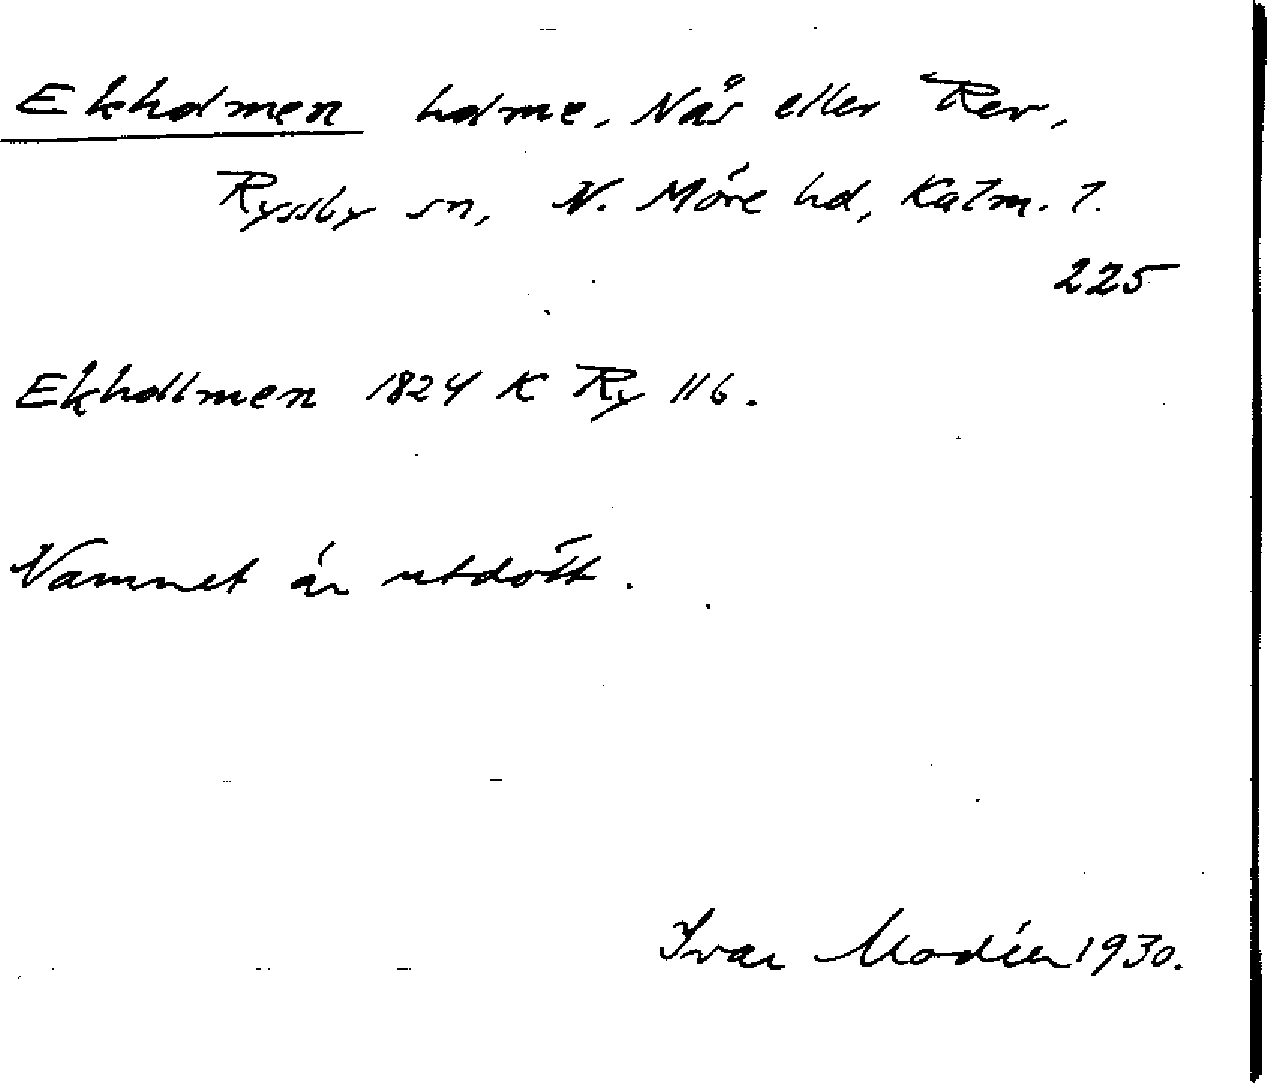 Ekholmen holme, Näs eller Rev,
Ryssby sn, N. Möre hd, Kalm. l.
225
Ekhollmen 1824 K Ry 116.
Namnet är utdött.
Ivar Modéer 1930.